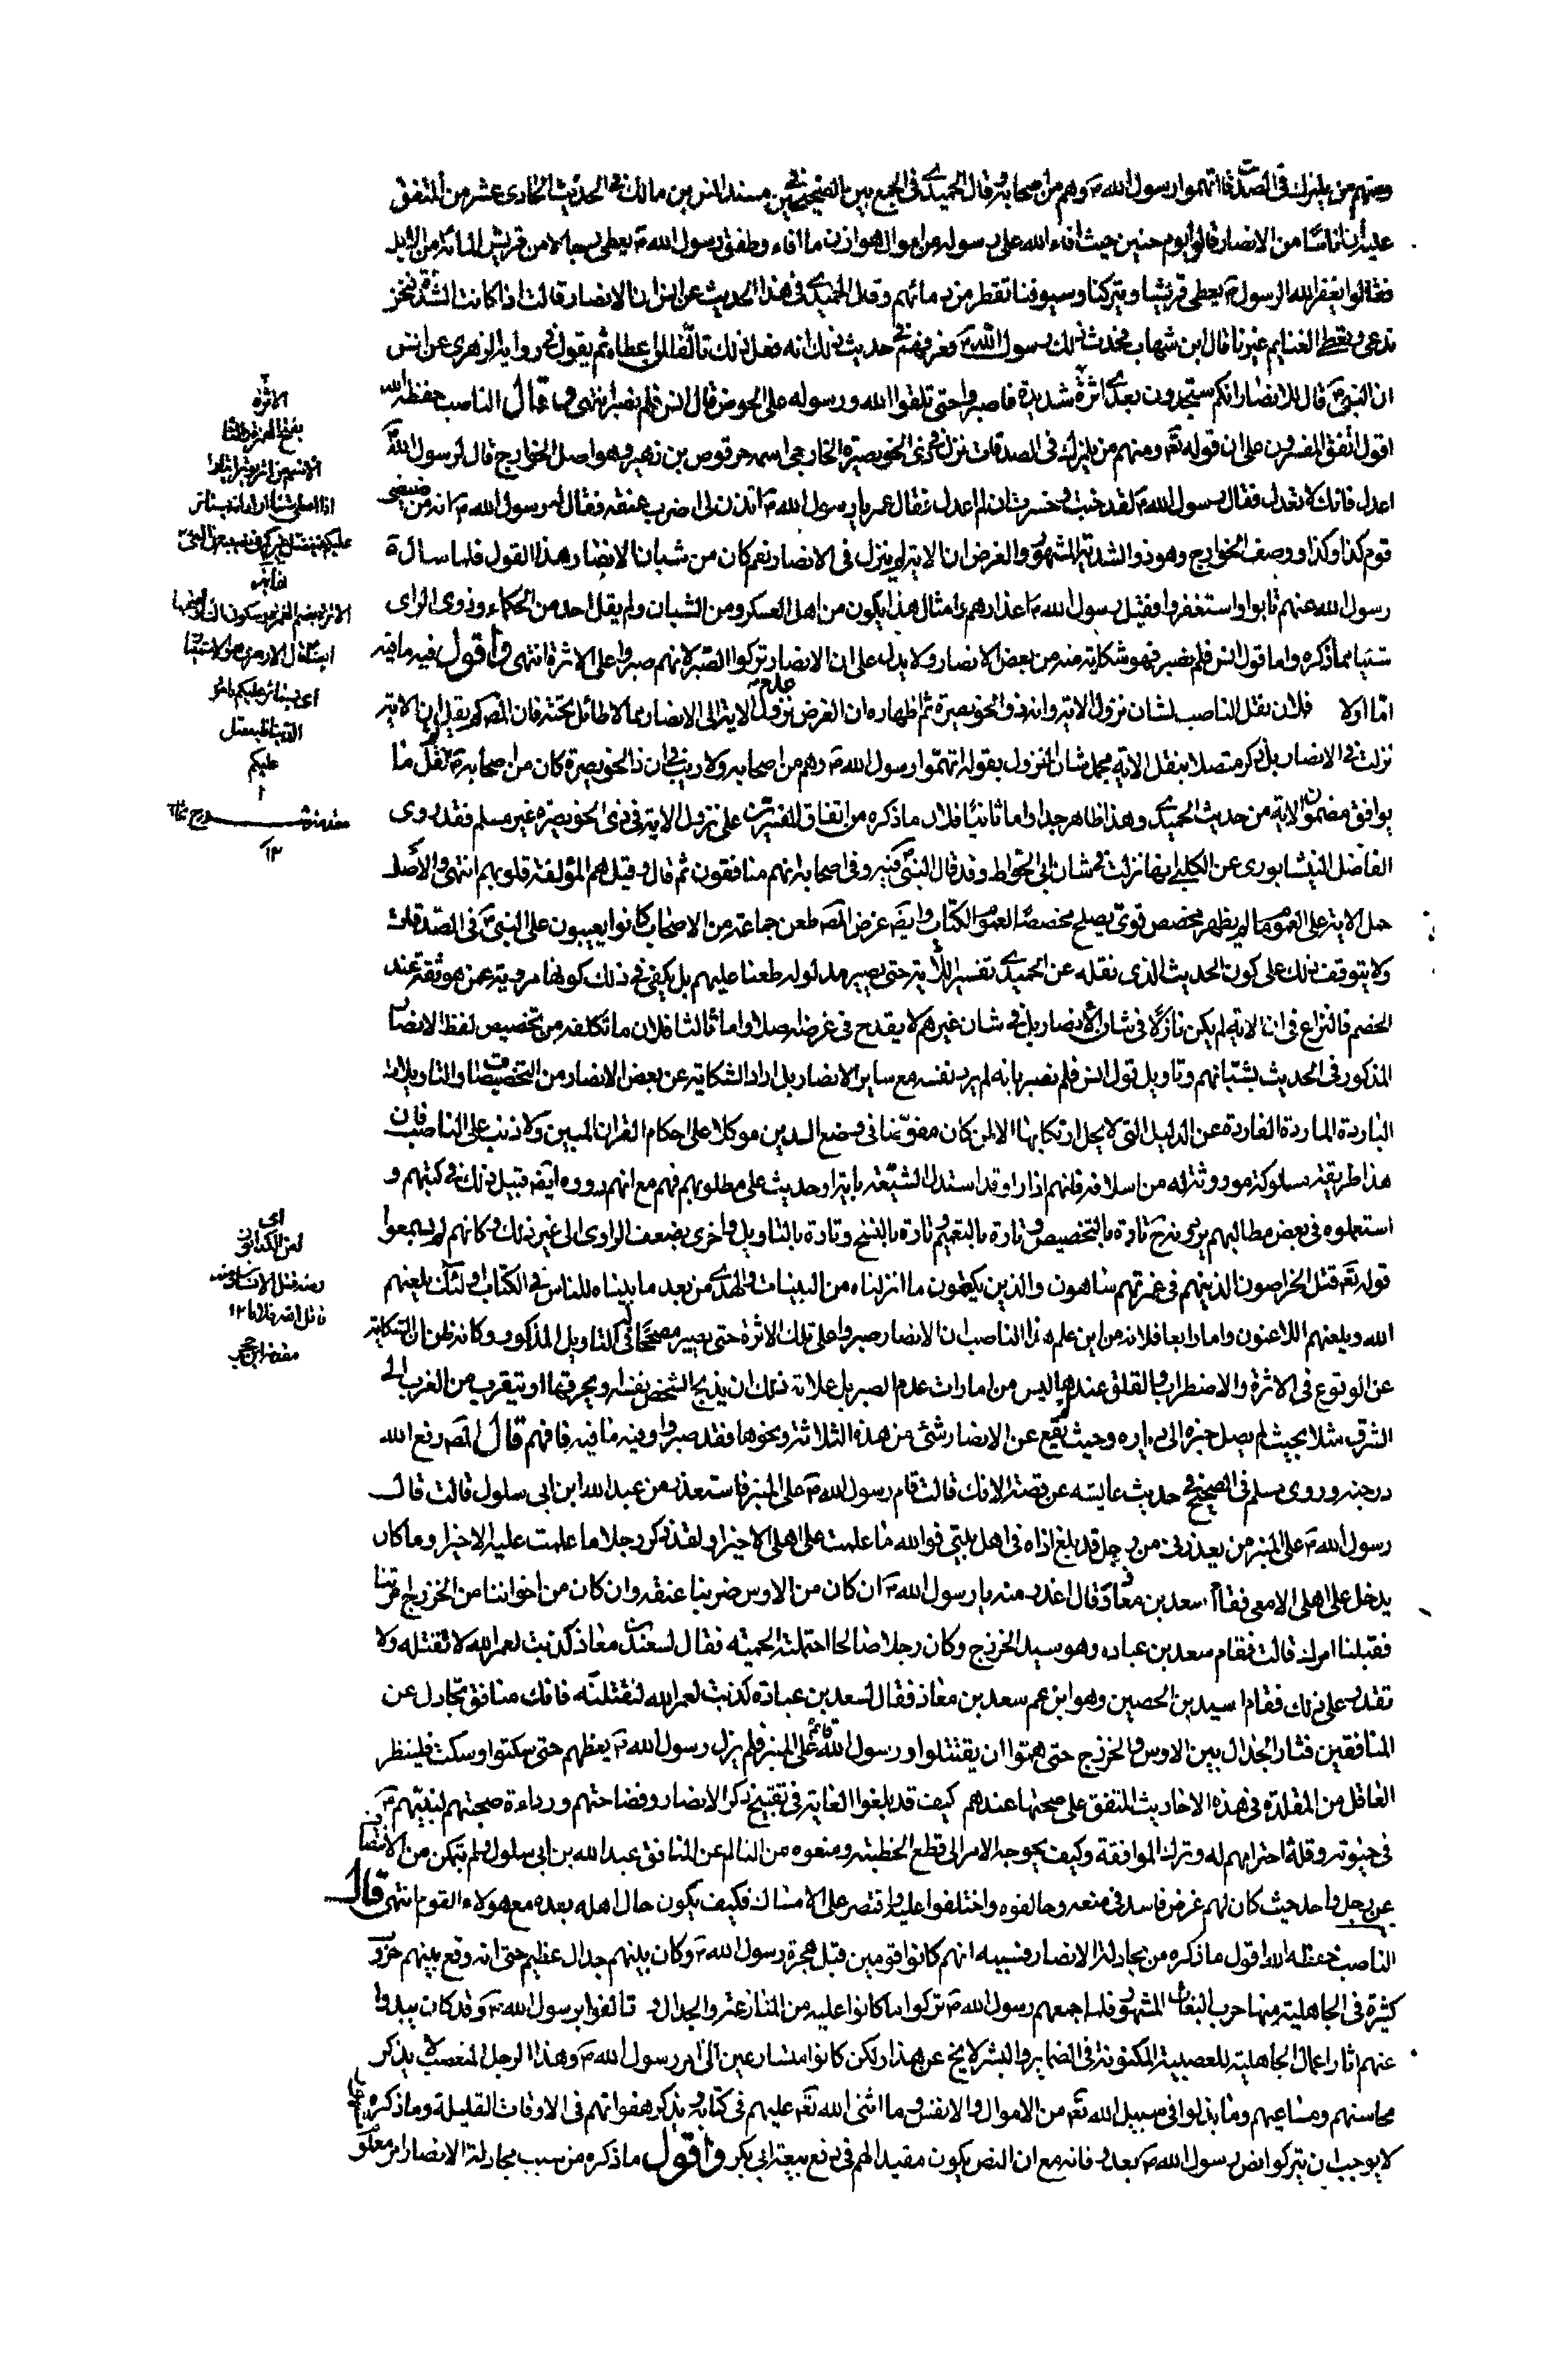 ومنهم من يلمزك في الصدقات اتهموا رسول الله ص وهم من صحابته وقال الحميدي في الجمع بين الصحيحين في مسند انس بن مالك في الحديث الحادي عشر من المتفق
عليه ان اناسا من الانصار قالوا يوم حنين حيث افاء الله على رسوله من اموال هوازن ما افاء وطفق رسول الله ص يعطي رجالا من قريش المائة من الابل
فقالوا يغفر الله لرسول الله ص يعطي قريشا ويتركنا وسيوفنا تقطر من دمائهم وقال الحميدي في هذا الحديث عن انس ان الانصار قالت اذا كانت الشدة فنحن
ندعى وتعطى الغنايم غيرنا قال ابن شهاب فحدث ذلك رسول الله ص فعرفهم في حديث ذلك انه فعل ذلك تالفا لمن اعطاه ثم يقول في رواية الزهري عن انس
ان النبي ص قال للانصار انكم ستجدون بعدي اثرة شديدة فاصبروا حتى تلقوا الله ورسوله على الحوض قال انس فلم نصبر انتهى وقال الناصب خفظه الله
اقول اتفق المفسرون على ان قوله تع ومنهم من يلمزك في الصدقات نزل في ذي الخويصرة الخارجي اسمه حرقوص بن زهير وهو اصل الخوارج قال لرسول الله ص
اعدل فانك لا تعدل فقال رسول الله ص لقد خبت وخسرت ان لم اعدل فقال عمر يا رسول الله ص ائذن لي اضرب عنقه فقال رسول الله ص انه من ضيضي
قوم كذا وكذا ووصف الخوارج وهو ذو الثدية المشهور والغرض ان الاية لم ينزل في الانصار نعم كان من شبان الانصار هذا القول فلما سال ة
رسول الله عنهم تابوا واستغفروا وقبل رسول الله ص اعذارهم وامثال هذا يكون من اهل العسكر ومن الشبان ولم يقل احد من الحكماء وذوي الراي
شيئا مما ذكره واما قول انس فلم نصبر فهو شكاية منه من بعض الانصار ولا يدل على ان الانصار تركوا الصبر لانهم صبروا على الاثرة انتهى واقول فيه ما فيه
اما اولا فلان نقل الناصب لشان نزول الاية وانه ذو الخويصرة ثم اظهاره ان الغرض عدم نزول الاية في الانصار مما لا طائل تحته فان المص لم يقل ان الاية
نزلت في الانصار بل ذكر متصلا بنقل الاية مجمل شان النزول بقوله اتهموا رسول الله ص وهم من اصحابه ولا ريب في ان ذا الخويصرة كان من صحابته ثم نقل ما
يوافق مضمون الاية من حديث الحميدي وهذا ظاهر جدا واما ثانيا فلان ما ذكره من اتفاق المفسرين على نزول الاية في ذي الخويصرة غير مسلم فقد روى
الفاضل النيشابوري عن الكلبي انها نزلت في شان ابي الخواط وقد قال النبي ص فيه وفي اصحابه انهم منافقون ثم قال وقيل هم المؤلفة قلوبهم انتهى والاصل
حمل الاية على العموم ما لم يظهر مخصص قوي يصلح مخصصا لعموم الكتاب وايضا غرض المص طعن جماعة من الاصحاب كانوا يعيبون على النبي ص في الصدقات
ولا يتوقف ذلك على كون الحديث الذي نقله عن الحميدي تفسيرا للاية حتى يصير مدلوله طعنا عليهم بل يكفي في ذلك كونها مروية عمن هو ثقة عند
الخصم فالنزاع في ان الاية لم يكن نازلا في شان الانصار بل في شان غيرهم لا يقدح في غرضه اصلا واما ثالثا فلان ما تكلفه من تخصيص لفظ الانصار
المذكور في الحديث بشبانهم وتاويل قول انس فلم نصبر بانه لم يرد نفسه مع ساير الانصار بل اراد الشكاية عن بعض الانصار من التخصيصات والتاويلات
الباردة الماردة الفاردة عن الدليل التي لا يحل ارتكابها الا لمن كان مفوضا في وضع الدين موكلا على احكام القران المبين ولا ذنب على الناصب فان
هذا طريقة مسلوكة موروثة له من اسلافه فانهم اذا راوا قد استدل الشيعة باية او حديث على مطلوبهم فهم مع انهم رووه ايضا قبيل ذلك في كتبهم و
استعملوه في بعض مطالبهم يردونه تارة بالتخصيص وتارة بالتعميم وتارة بالنسخ وتارة بالتاويل واخرى بضعف الراوي الى غير ذلك وكانهم لم يسمعوا
قوله تع قتل الخراصون الذين هم في غمرتهم ساهون والذين يكتمون ما انزلناه من البينات والهدى من بعد ما بيناه للناس في الكتاب اولئك يلعنهم
الله ويلعنهم اللاعنون واما رابعا فلانه من اين علم هذا الناصب ان الانصار صبروا على تلك الاثرة حتى يصير مصححا للتاويل المذكور وكانه ظن ان الشكاية
عن الوقوع في الاثرة والاضطراب والقلق عندها ليس من امارات عدم الصبر بل علامة ذلك ان يذبح الشخص نفسه ويحرقها او يتقرب من الغرب الى
الشرق مثلا بحيث لم يصل خبره الى دياره وحيث لم يقع عن الانصار شئ من هذه الثلاثة ونحوها فقد صبروا وفيه ما فيه فافهم قال المص رفع الله
درجته وروى مسلم في الصحيح في حديث عايشه عن قصة الافك قالت قام رسول الله ص على المنبر فاستعذر من عبد الله ابن ابي سلول قالت قال
رسول الله ص على المنبر من يعذرني من رجل قد بلغ اذاه في اهل بيتي فوالله ما علمت على اهلي الا خيرا ولقد ذكروا رجلا ما علمت عليه الا خيرا وما كان
يدخل على اهلي الا معي فقام سعد بن معاذ وقال اعذرك منه يا رسول الله ص ان كان من الاوس ضربنا عنقه وان كان من اخواننا من الخزرج امرتنا
فقبلنا امرك قالت فقام سعد بن عباده وهو سيد الخزرج وكان رجلا صالحا احتملته الحمية فقال لسعد بن معاذ كذبت لعمر الله لا تقتله ولا
تقدر على ذلك فقام اسيد بن الحصين وهو ابن عم سعد بن معاذ فقال لسعد بن عبادة كذبت لعمر الله لنقتلنه فانك منافق تجادل عن
المنافقين فثار الجدال بين الاوس والخزرج حتى هموا ان يقتتلوا ورسول الله ص قائم على المنبر فلم يزل رسول الله ص يعظهم حتى سكتوا وسكت فلينظر
العاقل من المقلدة في هذه الاحاديث المتفق على صحتها عندهم كيف قد بلغوا الغاية في تقبيح ذكر الانصار وفضاحتهم ورداءة صحبتهم لنبيهم ص
في حيوته وقلة احترامهم له وترك الموافقة وكيف يحوجه الامر الى قطع الخطبة ومنعوه من التالم عن المنافق عبد الله بن ابي سلول ولم يتمكن من الانتصاف
عن رجل واحد حيث كان لهم غرض فاسد في منعه وخالفوه واختلفوا عليه واقتصر على الامساك فكيف يكون حال اهله بعده مع هولاء القوم انتهى قال
الناصب خفظه الله اقول ما ذكره من مجادلة الانصار فسببه انهم كانوا قومين قبل هجرة رسول الله ص وكان بينهم جدال عظيم حتى انه وقع بينهم حروب
كثيرة في الجاهلية منها حرب البعاث المشهور فلما جمعهم رسول الله ص تركوا ما كانوا عليه من المنازعة والجدال و تالفوا برسول الله ص وقد كان يبدوا
عنهم اثار اعمال الجاهلية للعصبية المكنونة في الضماير والبشر لا يخ عن هذا ولكن كانوا مسارعين الى امر رسول الله ص وهذا الرجل المتعصب لا يذكر
محاسنهم ومساعيهم وما بذلوا في سبيل الله تع من الاموال والانفس وما اثنى الله تع عليهم في كتابه ويذكر هفواتهم في الاوقات القليلة وما ذكره
لا يوجب ان يتركوا نص رسول الله ص بعده فانه مع ان النص يكون مفيدا لهم في دفع بيعة ابي بكر واقول ما ذكره من سبب مجادلة الانصار امر معلوم
الاثرة
بفتح الهمزة والثا
الاسم من اثر يوثر ايثارا
اذا اعطى اراد انه يستاثر
عليكم فيفضل غيركم في نصيبه من الفئ
نهاية
اي يستاثر عليكم بامور
الدنيا
عليكم
١٢
اي
لعن الكذابون